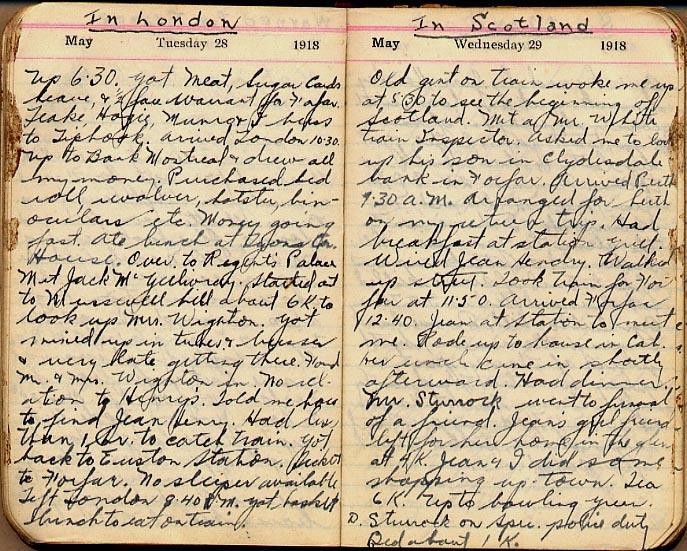 In London
May Tuesday 28 1918
Up 6:30. Got Meat, Sugar Cards
leave, & ½ fare Warrant for Forfar.
Leake, Hogg, Munro & I buss
to Tiphook, arrived London 10:30.
Up to Bank Montreal & drew all
my money. Purchased bed
roll revolver, holster, bin-
oculars etc. Money going
fast. Ate lunch at Lyons Cor.
House. Over to Regents Palace
Met Jack Started out
to Musswell hill about 6K to
look up Mrs. Wighton. Got
mixed up in tubes & busses
& very late getting there. Found
Mr. & Mrs. Wighton in. No rel-
ation to Henrys. Told me how
to find Jean Henry. Had less
than 1 hr. to catch train. Got
back to Euston Station. Ticket
to Forfar. No sleeper available
Left London 8:40 P.M. Got basket
lunch to eat on train.
In Scotland
May Wednesday 29 1918
Old gent on train woke me up
at 5:30 to see the beginning of
Scotland. Met a Mr. White
train Inspector. Asked me to look
up his son in Clydisdale
bank in Forfar. Arrived Perth
9:30 A.M. Arranged for berth
on my return trip. Had
breakfast at station grill.
Wired Jean Hendry. Walked
up street. Took train for For
far at 11:50. Arrived Forfar
12:40. Jean at Station to meet
me. Rode up to house in Cab.
Her uncle came in shortly
afterward. Had dinner.
Mr. Sturrock went to funeral
of a friend. Jeans girl friend
left for her home in the glen
at 4K. Jean & I did some
shopping up town. Tea
6K. Up to bowling green.
D. Sturrock on spec. police duty
Bed about 1 K.